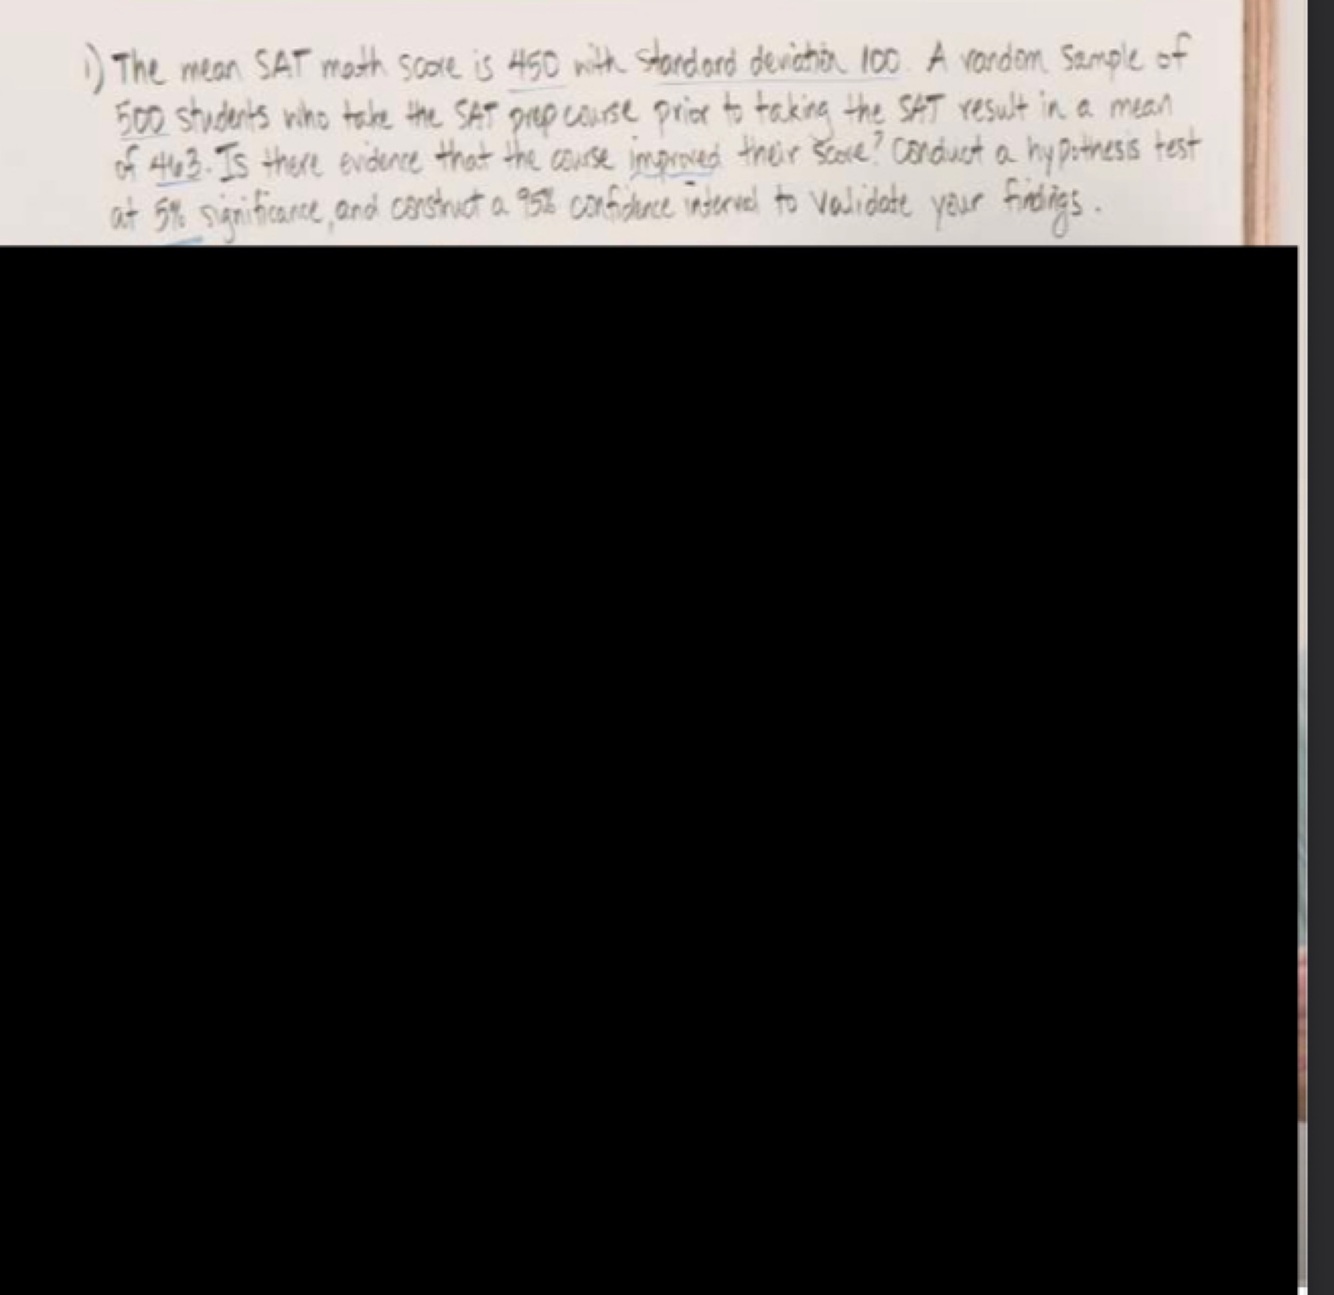 1) The mean SAT math score is 450 with standard deviation 100. A random sample of
500 students who take the SAT prep course prior to taking the SAT result in a mean
of 463. Is there evidence that the course improved their score? Conduct a hypothesis test
at 5% significance, and construct a 95% confidence interval to validate your findings.